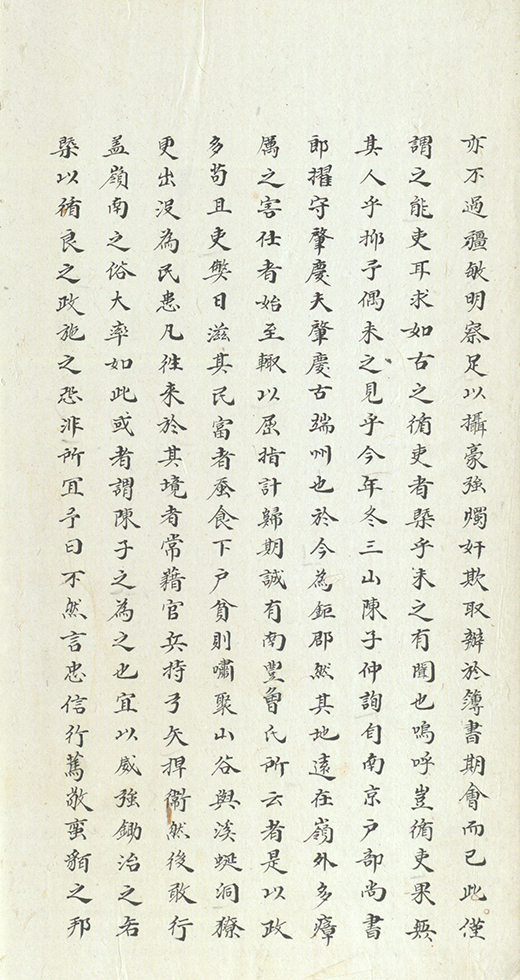 亦不過彊敏明察足以攝豪強燭奸欺取辦於簿書期會而已此僅
謂之能吏耳求如古之循吏者槩乎未之有聞也嗚呼豈循吏果無
其人乎抑予偶未之見乎今年冬三山陳子仲詢自南京户部尚書
郎擢守肇慶夫肇慶古端州也於今為鉅郡然其地遠在嶺外多瘴
厲之害仕者始至輙以屈指計歸期誠有南豐曾氏所云者是以政
多苟且吏弊日滋其民富者蚕食下户貧則嘯聚山谷與溪蜒洞獠
更出没為民患凡徃来於其境者常藉官兵持弓矢捍衛然後敢行
盖嶺南之俗大率如此或者謂陳子之為之也宜以威強鋤治之若
槩以循良之政施之恐非所宜予曰不然言忠信行篤敬蛮貊之邦